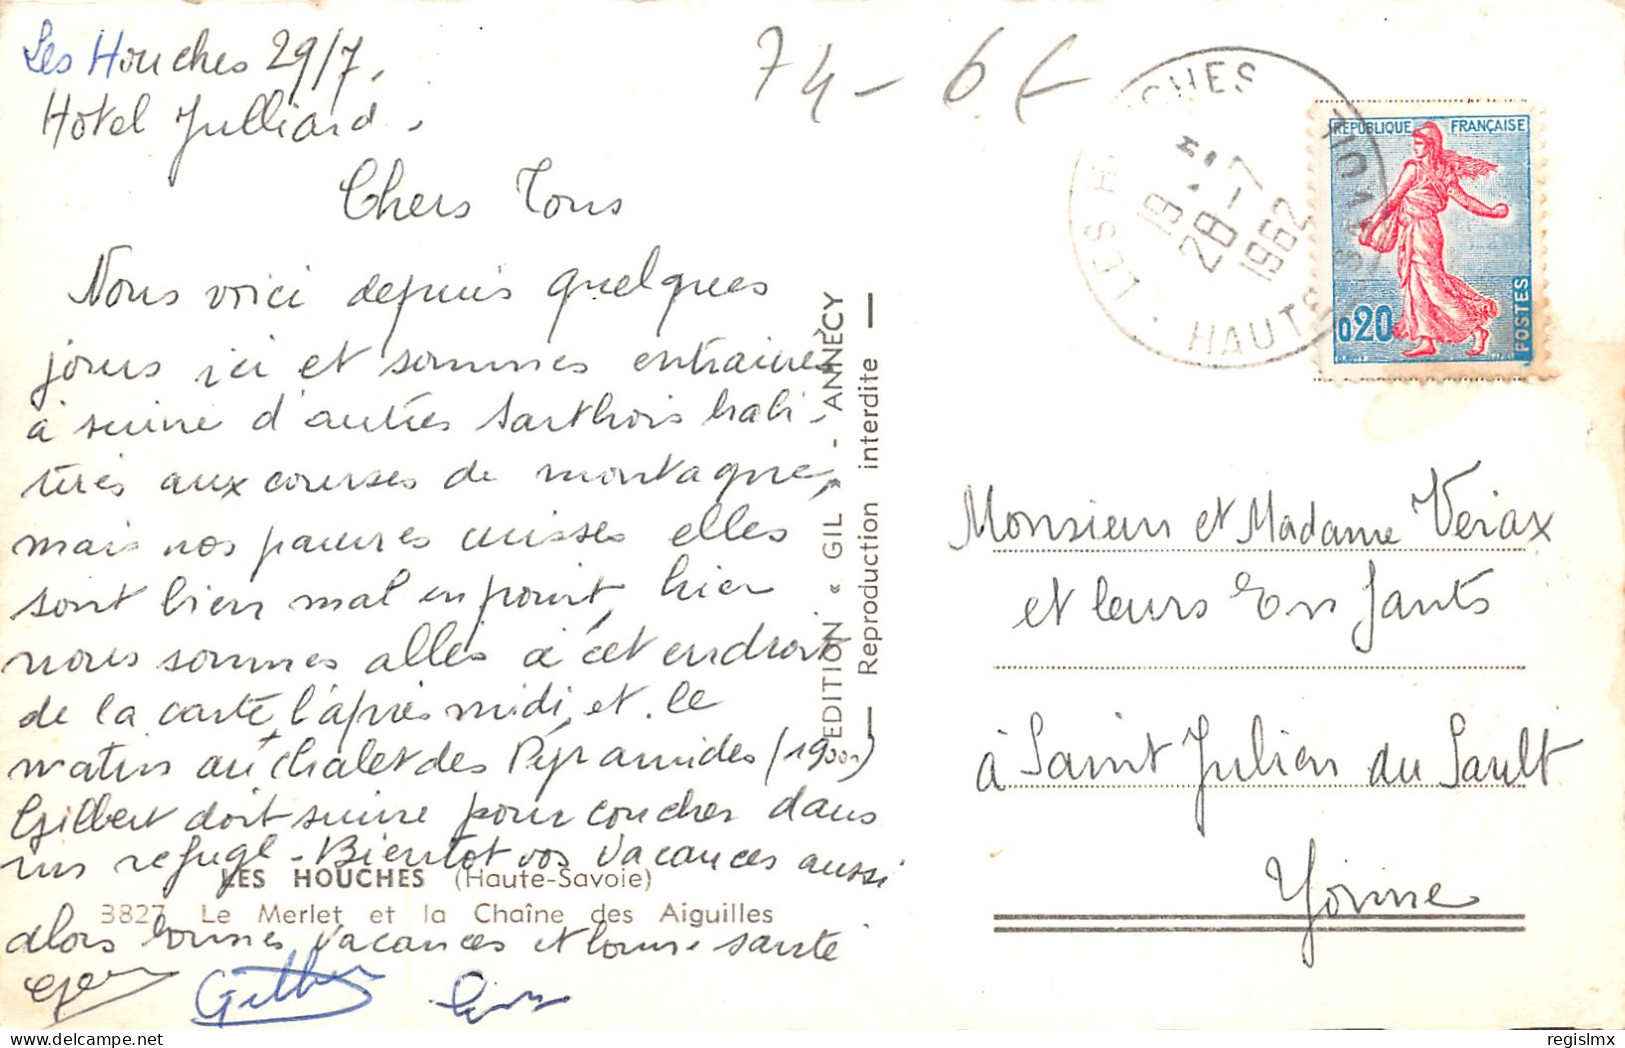 Les Houches 29/7.
Hotel Julliard.
74 - 6€
Chers Tous
Nous voici depuis quelques
jours ici et sommes entrainés
à suivre d'autres Sarthois habi-
tués aux courses de montagne,
mais nos pauvres cuisses elles
sont bien mal en point, hier
nous sommes allés à cet endroit
de la carte, l'après midi, et le
matin au chalet des Pyramides (1900m)
Gilbert doit suivre pour coucher dans
un refuge - Bientot vos vacances aussi
alors bonnes vacances et bonne santé
Gilbert
LES HOUCHES (Haute-Savoie)
3827 Le Merlet et la Chaîne des Aiguilles
EDITION « GIL » - ANNECY
Reproduction interdite
LES HOUCHES
19 H
28-7
1962
HAUTE SAVOIE
RÉPUBLIQUE FRANÇAISE
0,20
POSTES
Monsieur et Madame Veriax
et leurs Enfants
à Saint Julien du Sault
Yonne
regislmx